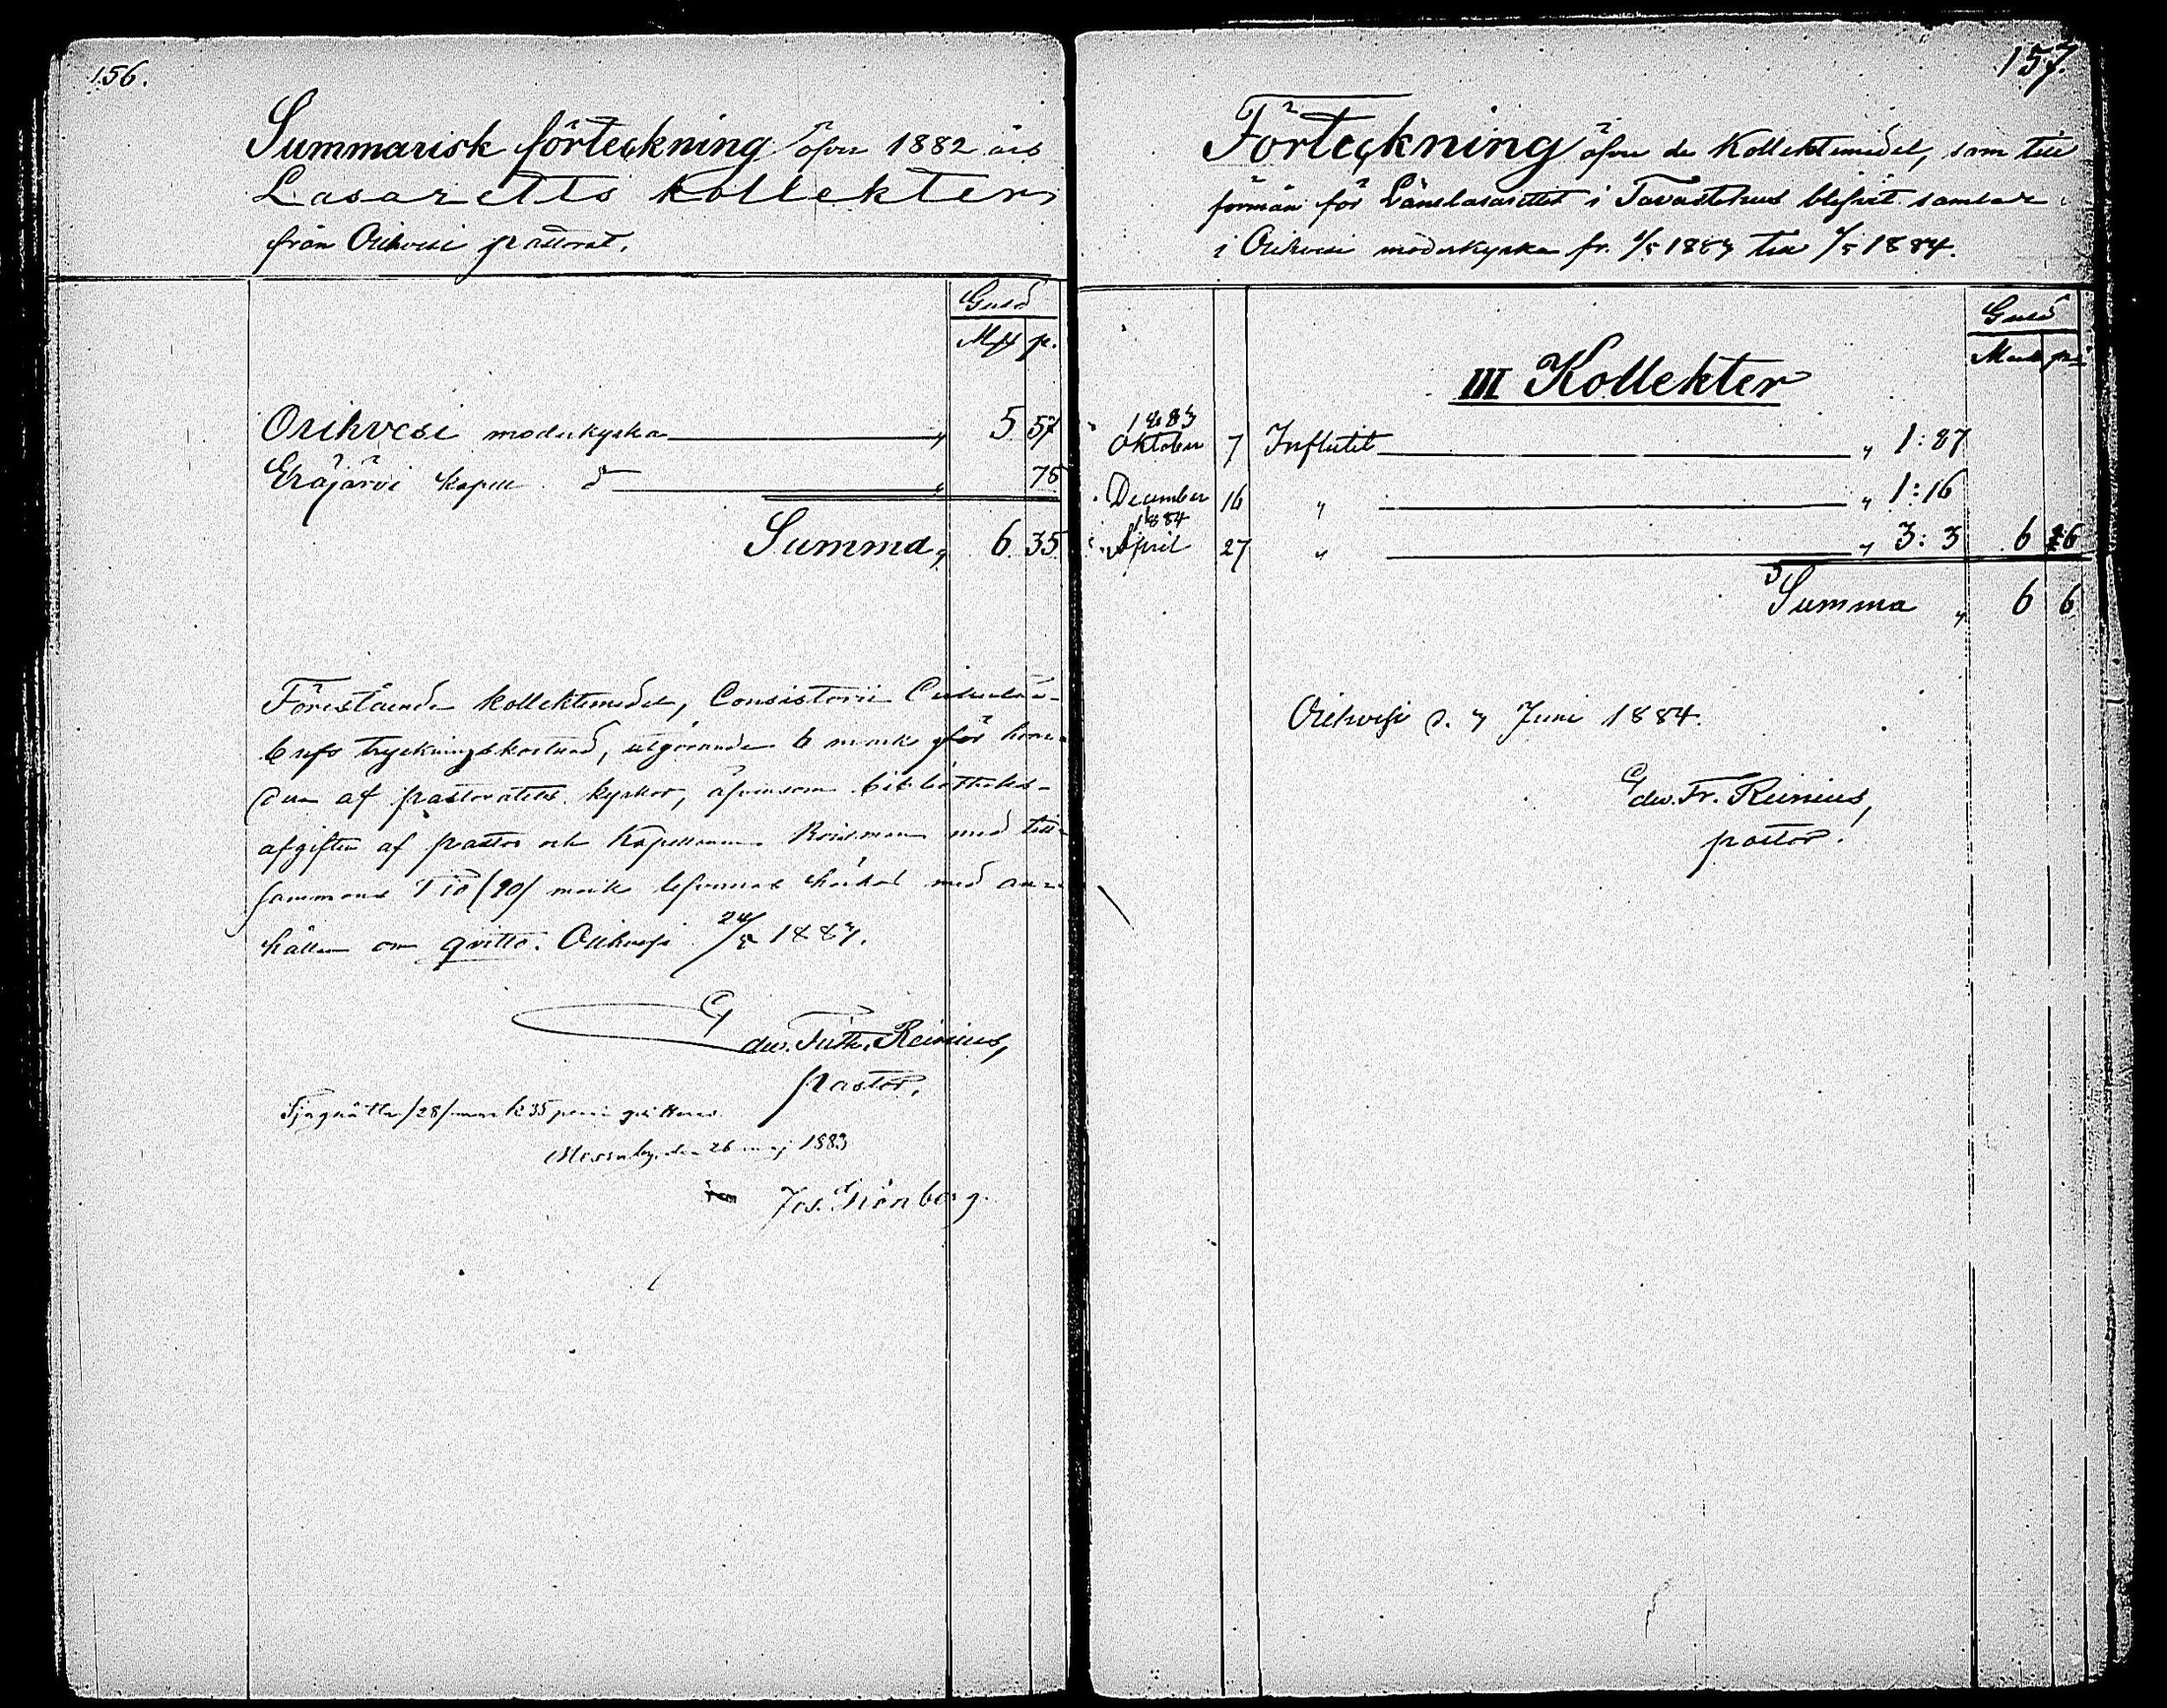 156.
Summarisk förteckning öfver 1882 års
Lasaretts kollekter
från Orihvesi pastorat.
Guld
Mk p.
Orihvesi moderkyrka " 5 57
Eräjärvi kapell d:o " 78
Summa " 6. 35.
Förestående kollektmedel, Consistorii Cirkulär-
brefs tryckningskostnad, utgörande 6 mark för hvar-
dera af pastoratets kyrkor, äfvensom bibliotheks-
afgiften af pastor och Kapellanen med till-
sammans Tio /10/ mark härhos med an-
hållan om qvitto. Orihvesi 24/5 1883.
Edv. Fr:th. Reinius,
pastor.
Tjuguåtta /28/ mark 35 penni qvitteras
den 26 maj 1883
Jos. Grönberg.
157.
Förteckning öfver de Kollektmedel, som till
förmån för Länslasarettet i Tavastehus blifvit samlade
i Orihvesi moderkyrka fr. 1/5 1883 till 1/5 1884.
Guld
Mark p:i
III Kollekter
1883
Oktober 7 Influtit " 1: 87
December 16 " " 1: 16
1884
April 27 " " 3: 3 6 6
Summa " 6 6
Orihvesi d. 3 Juni 1884.
Edv. Fr. Reinius,
pastor.